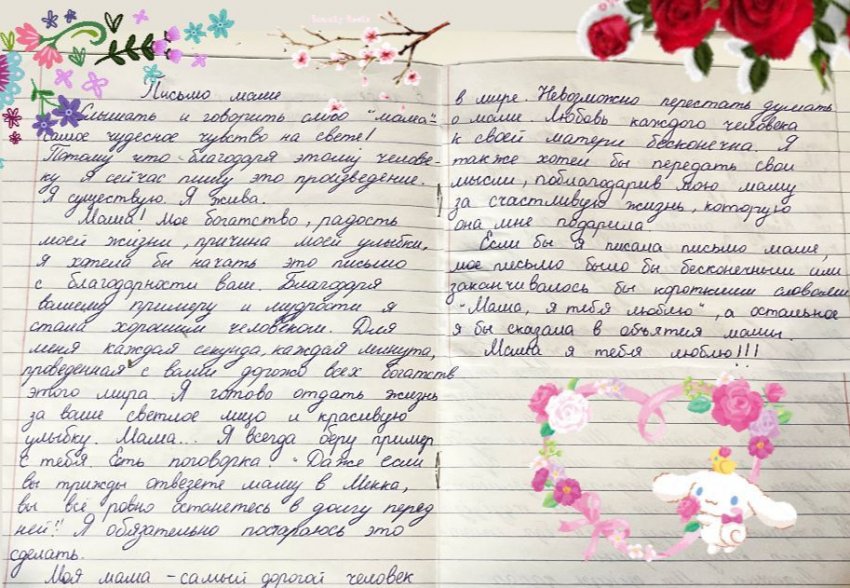 Письмо маме
Слышать и говорить слово "мама"
самое чудесное чувство на свете!
Потому что благодаря этому челове-
ку я сейчас пишу это произведение.
Я существую. Я жива.
Мама! Мое богатство, радость
моей жизни, причина моей улыбки,
я хотела бы начать это письмо
с благодарности вам. Благодаря
вашему примеру и мудрости я
стала хорошим человеком. Для
меня каждая секунда, каждая минута,
проведенная с вами дорожо всех богатств
этого мира. Я готово отдать жизнь
за ваше светлое лицо и красивую
улыбку. Мама... Я всегда беру пример
с тебя. Есть поговорка: "Даже если
вы трижды отвезете маму в Мекка,
вы всё ровно останетесь в долгу перед
ней!" Я обязательно постараюсь это
сделать.
Моя мама - самый дорогой человек
в мире. Невозможно перестать думать
о маме. Любовь каждого человека
к своей матери бесконечна. Я
также хотел бы передать свои
мысли, поблагодарив мою маму
за счастливую жизнь, которую
она мне подарила.
Если бы я писала письмо маме,
мое письмо было бы бесконечным или
заканчивалось бы короткими словами
"Мама, я тебя люблю", а остальное
я бы сказала в объятия мамы.
Мама я тебя люблю!!!